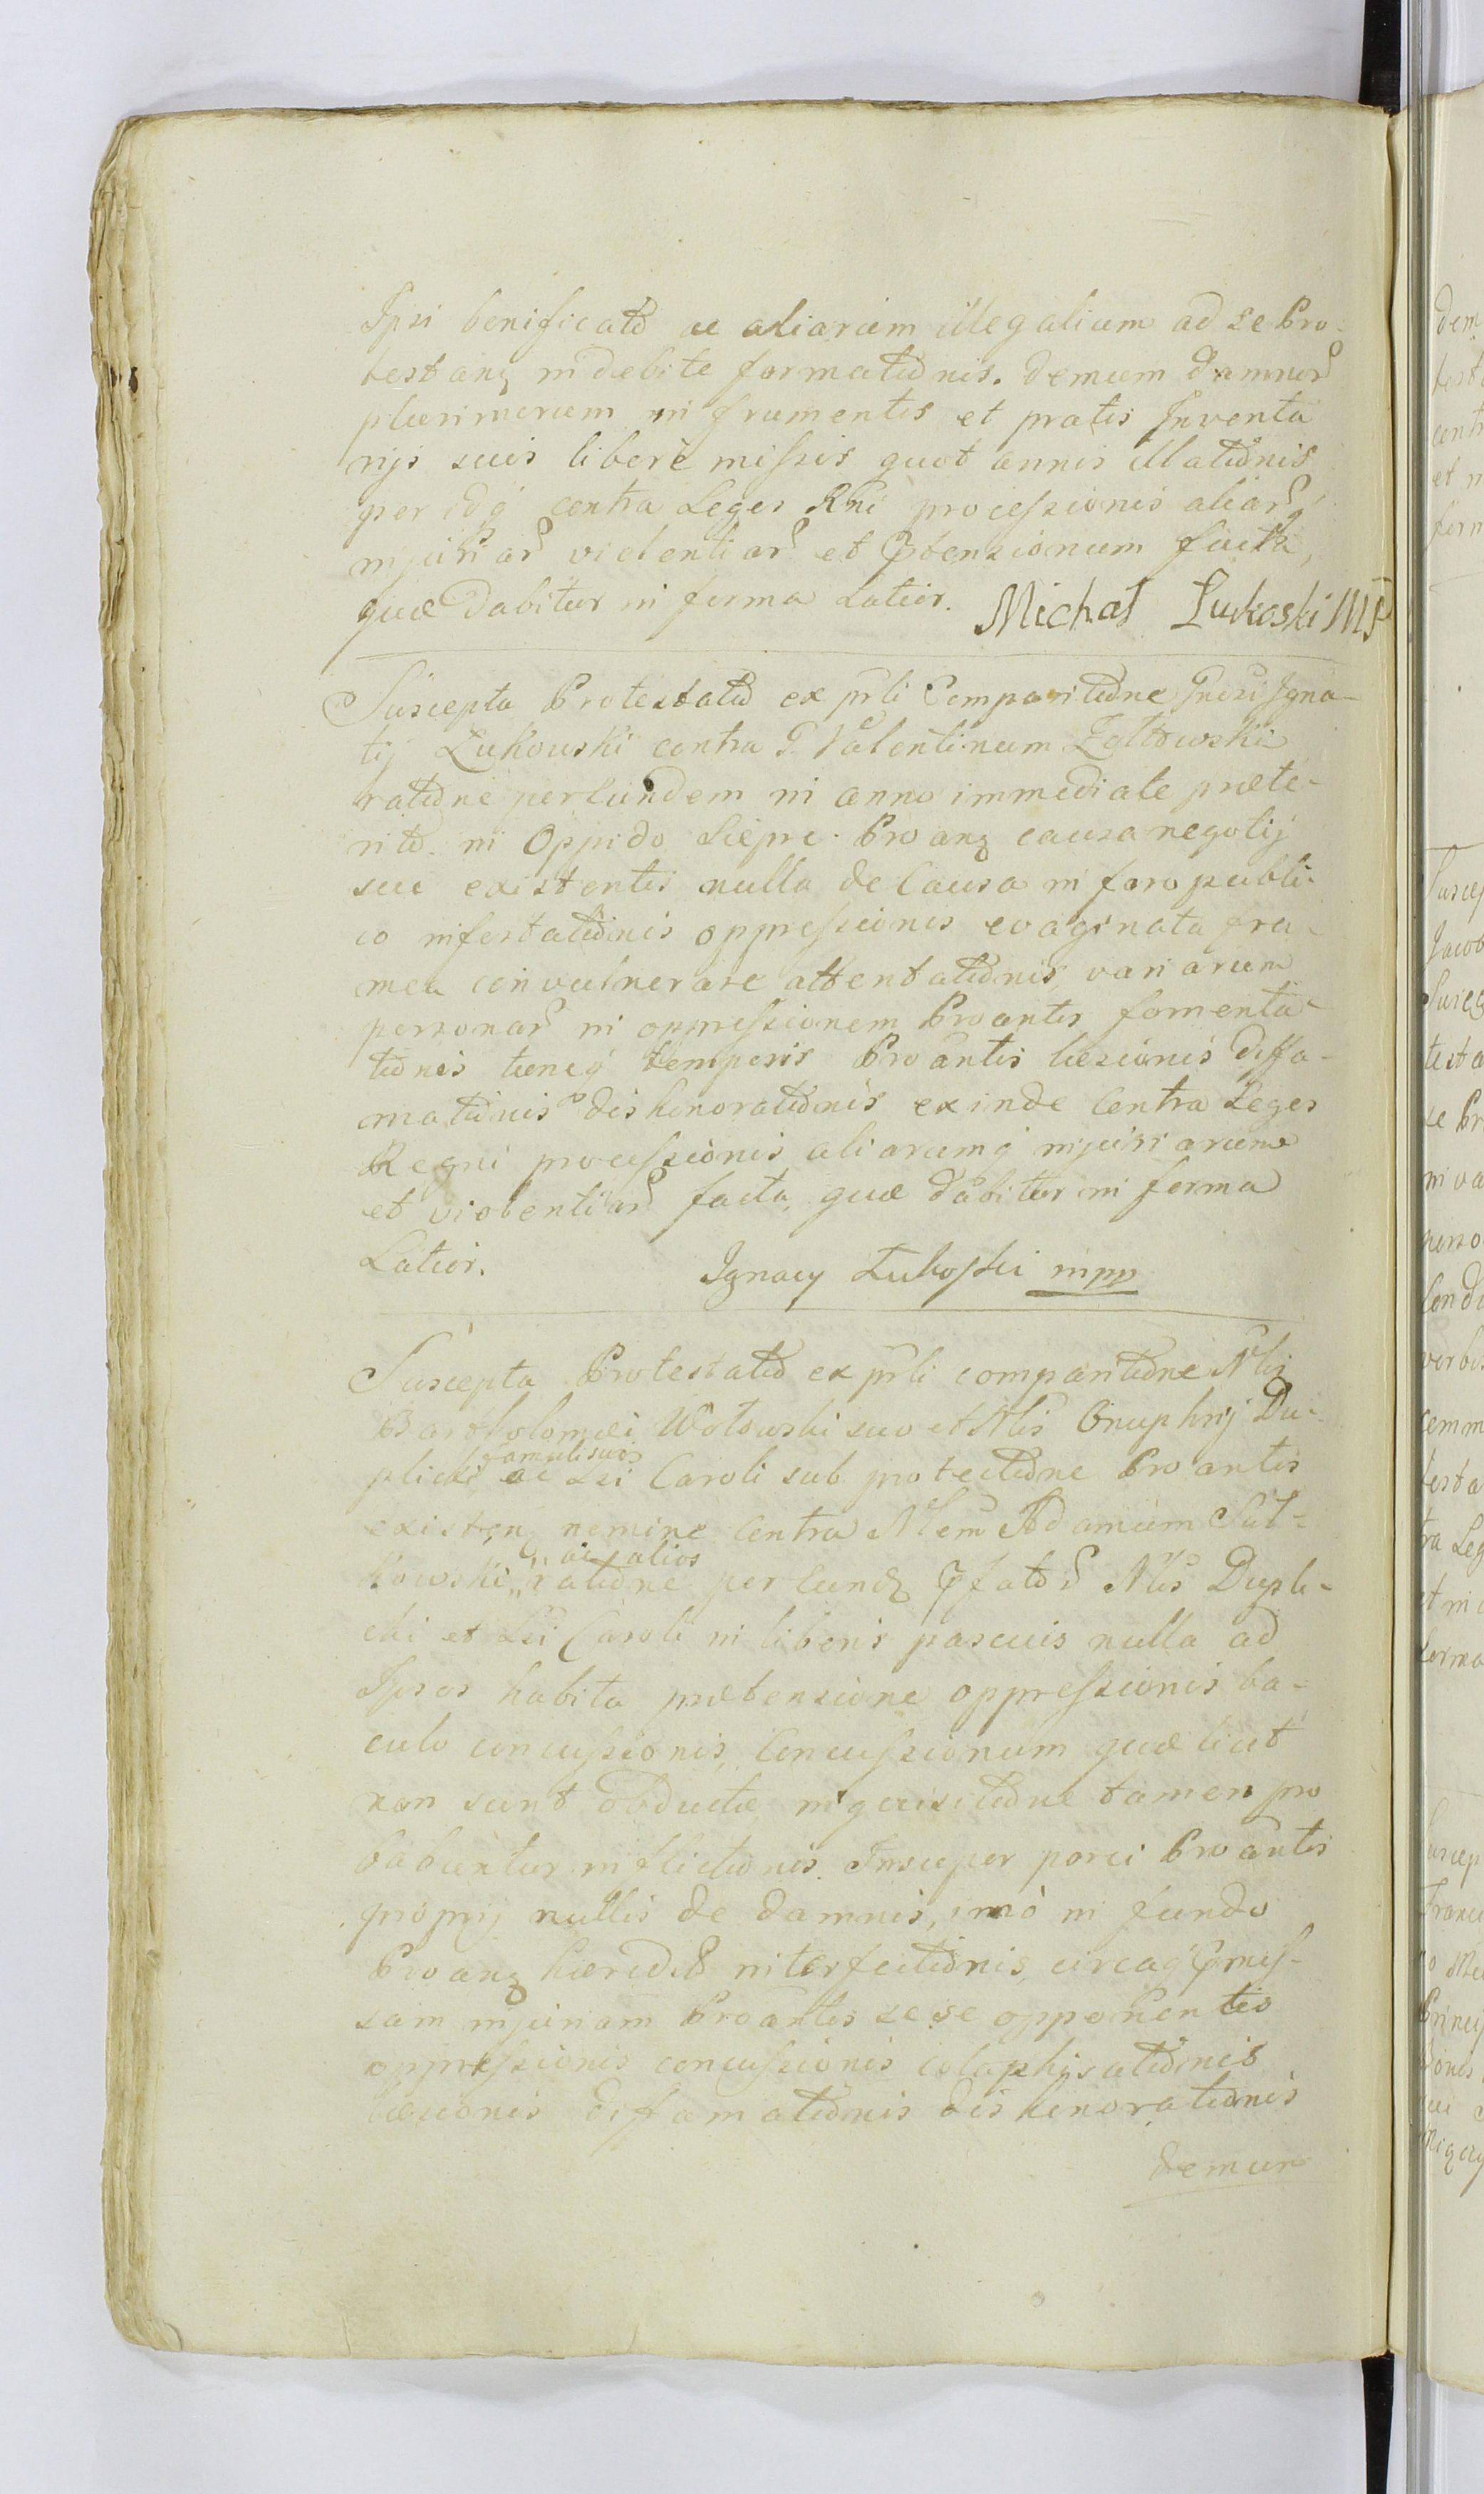 Ipsi benificatō ac aliarum illegalium ad se Pro-
testanz indebite formatiōnis. demum damnorꝰ
plurimorum in frumentis et pratis Inventa
rijs suis liberè missis quot annis illatiōnis
per idq́ contra Leges Rni processionis aliarꝰ
injuriarꝰ violentiarꝰ et Ptensionum facta,
quæ dabitur in forma Latior. Michał Łukoski MP
Suscepta Protestatiō ex prli Comparitiōne Gnosi Igna-
tij Łukowski contra G. Valentinum Zołtowski
ratiōne per Eundem in anno immediate præte-
ritō in Oppido Siepre. Proanz causa negotij
sui existentis nulla de Causa in foro publi-
co infestatiōnis oppressionis evaginata fra-
mea convulnerare attentatiōnis, variarum
personarꝰ in oppressionem Proantis fomenta-
tiōnis tuncq́ temporis Proantis læsionis diffa-
matiōnis dishonoratiōnis exinde Contra Leges
Regni processionis aliarumq́ injuriarum
et violentiarꝰ facta, quæ dabitur in forma
Latior. Ignacy Łukoski mpp
Suscepta Protestatiō ex prli comparitiōne Nlis
Bartholomæi Wołowski suo et Nlis Onuphrij Du-
famuli sui
plicki ac Lsi Caroli sub protectiōne Proantis
existen. nomine Contra Nlem Adamum Sul-
ac alios
kowski ratiōne per Eundz Pfatorꝰ Nlis Dupli-
cki et Lsi Caroli in liberis pascuis nulla ad
Ipsos habita prætensione oppressionis ba-
culo concussionis, Concussionum quæ licet
non sunt obductæ inquisitiōne tamen pro
babuntur inflictiōnis. Insuper porci Proantis
proprij nullis de damnis, imò in fundo
Proanz hæreditō interfectiōnis, circaq́ Pmis-
sam injuriam Proantis sese opponentis
oppressionis concussionis colaphisatiōnis
læsionis diffamatiōnis dishonoratiōnis
demum